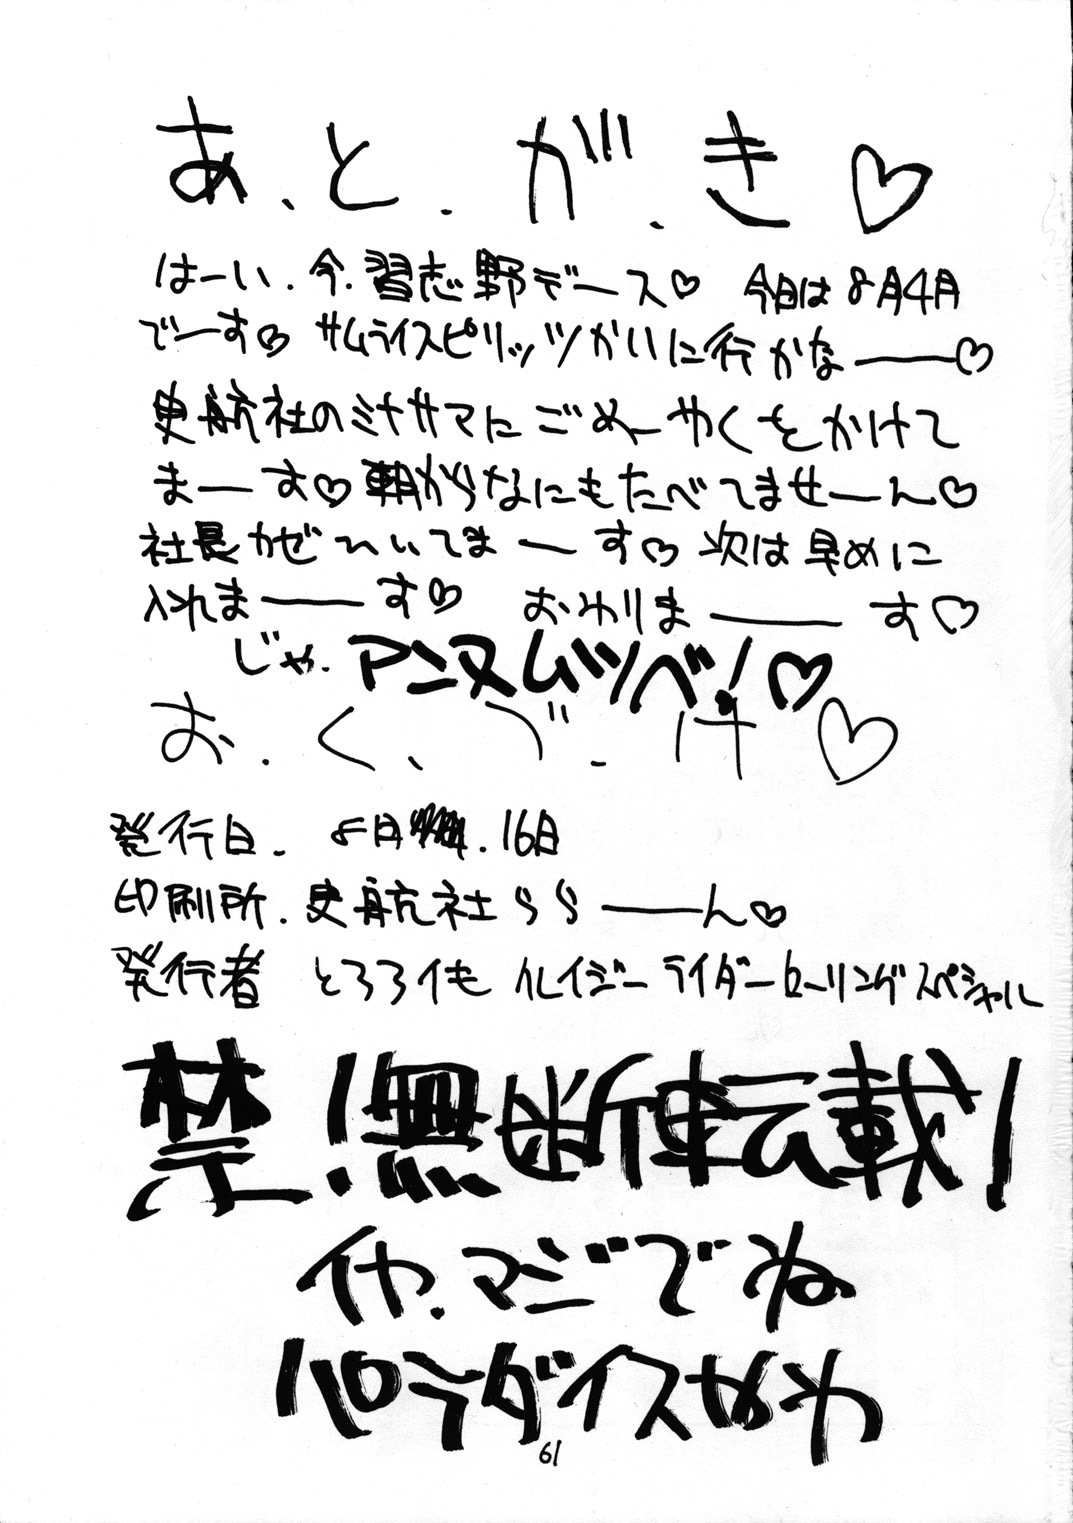 あ.と.が.き♡
はーい.今.習志野デース♡ 今日は8月4日
でーす♡ サムライスピリッツかいに行かな――♡
史航社のミナサマにごめーやくをかけて
まーす♡ 朝からなにもたべてませーん♡
社長かぜひいてまーす♡ 次は早めに
入れま――す♡ おわりま――す♡
じゃ.アンヌムツベ!♡
お.く.づ.け♡
発行日. 8月 .16日
印刷所.史航社らら――ん♡
発行者 とろろイモ クレイジーライダーローリングスペシャル
禁!無断転載!
イヤ.マジでね
パラダイスなわ
61